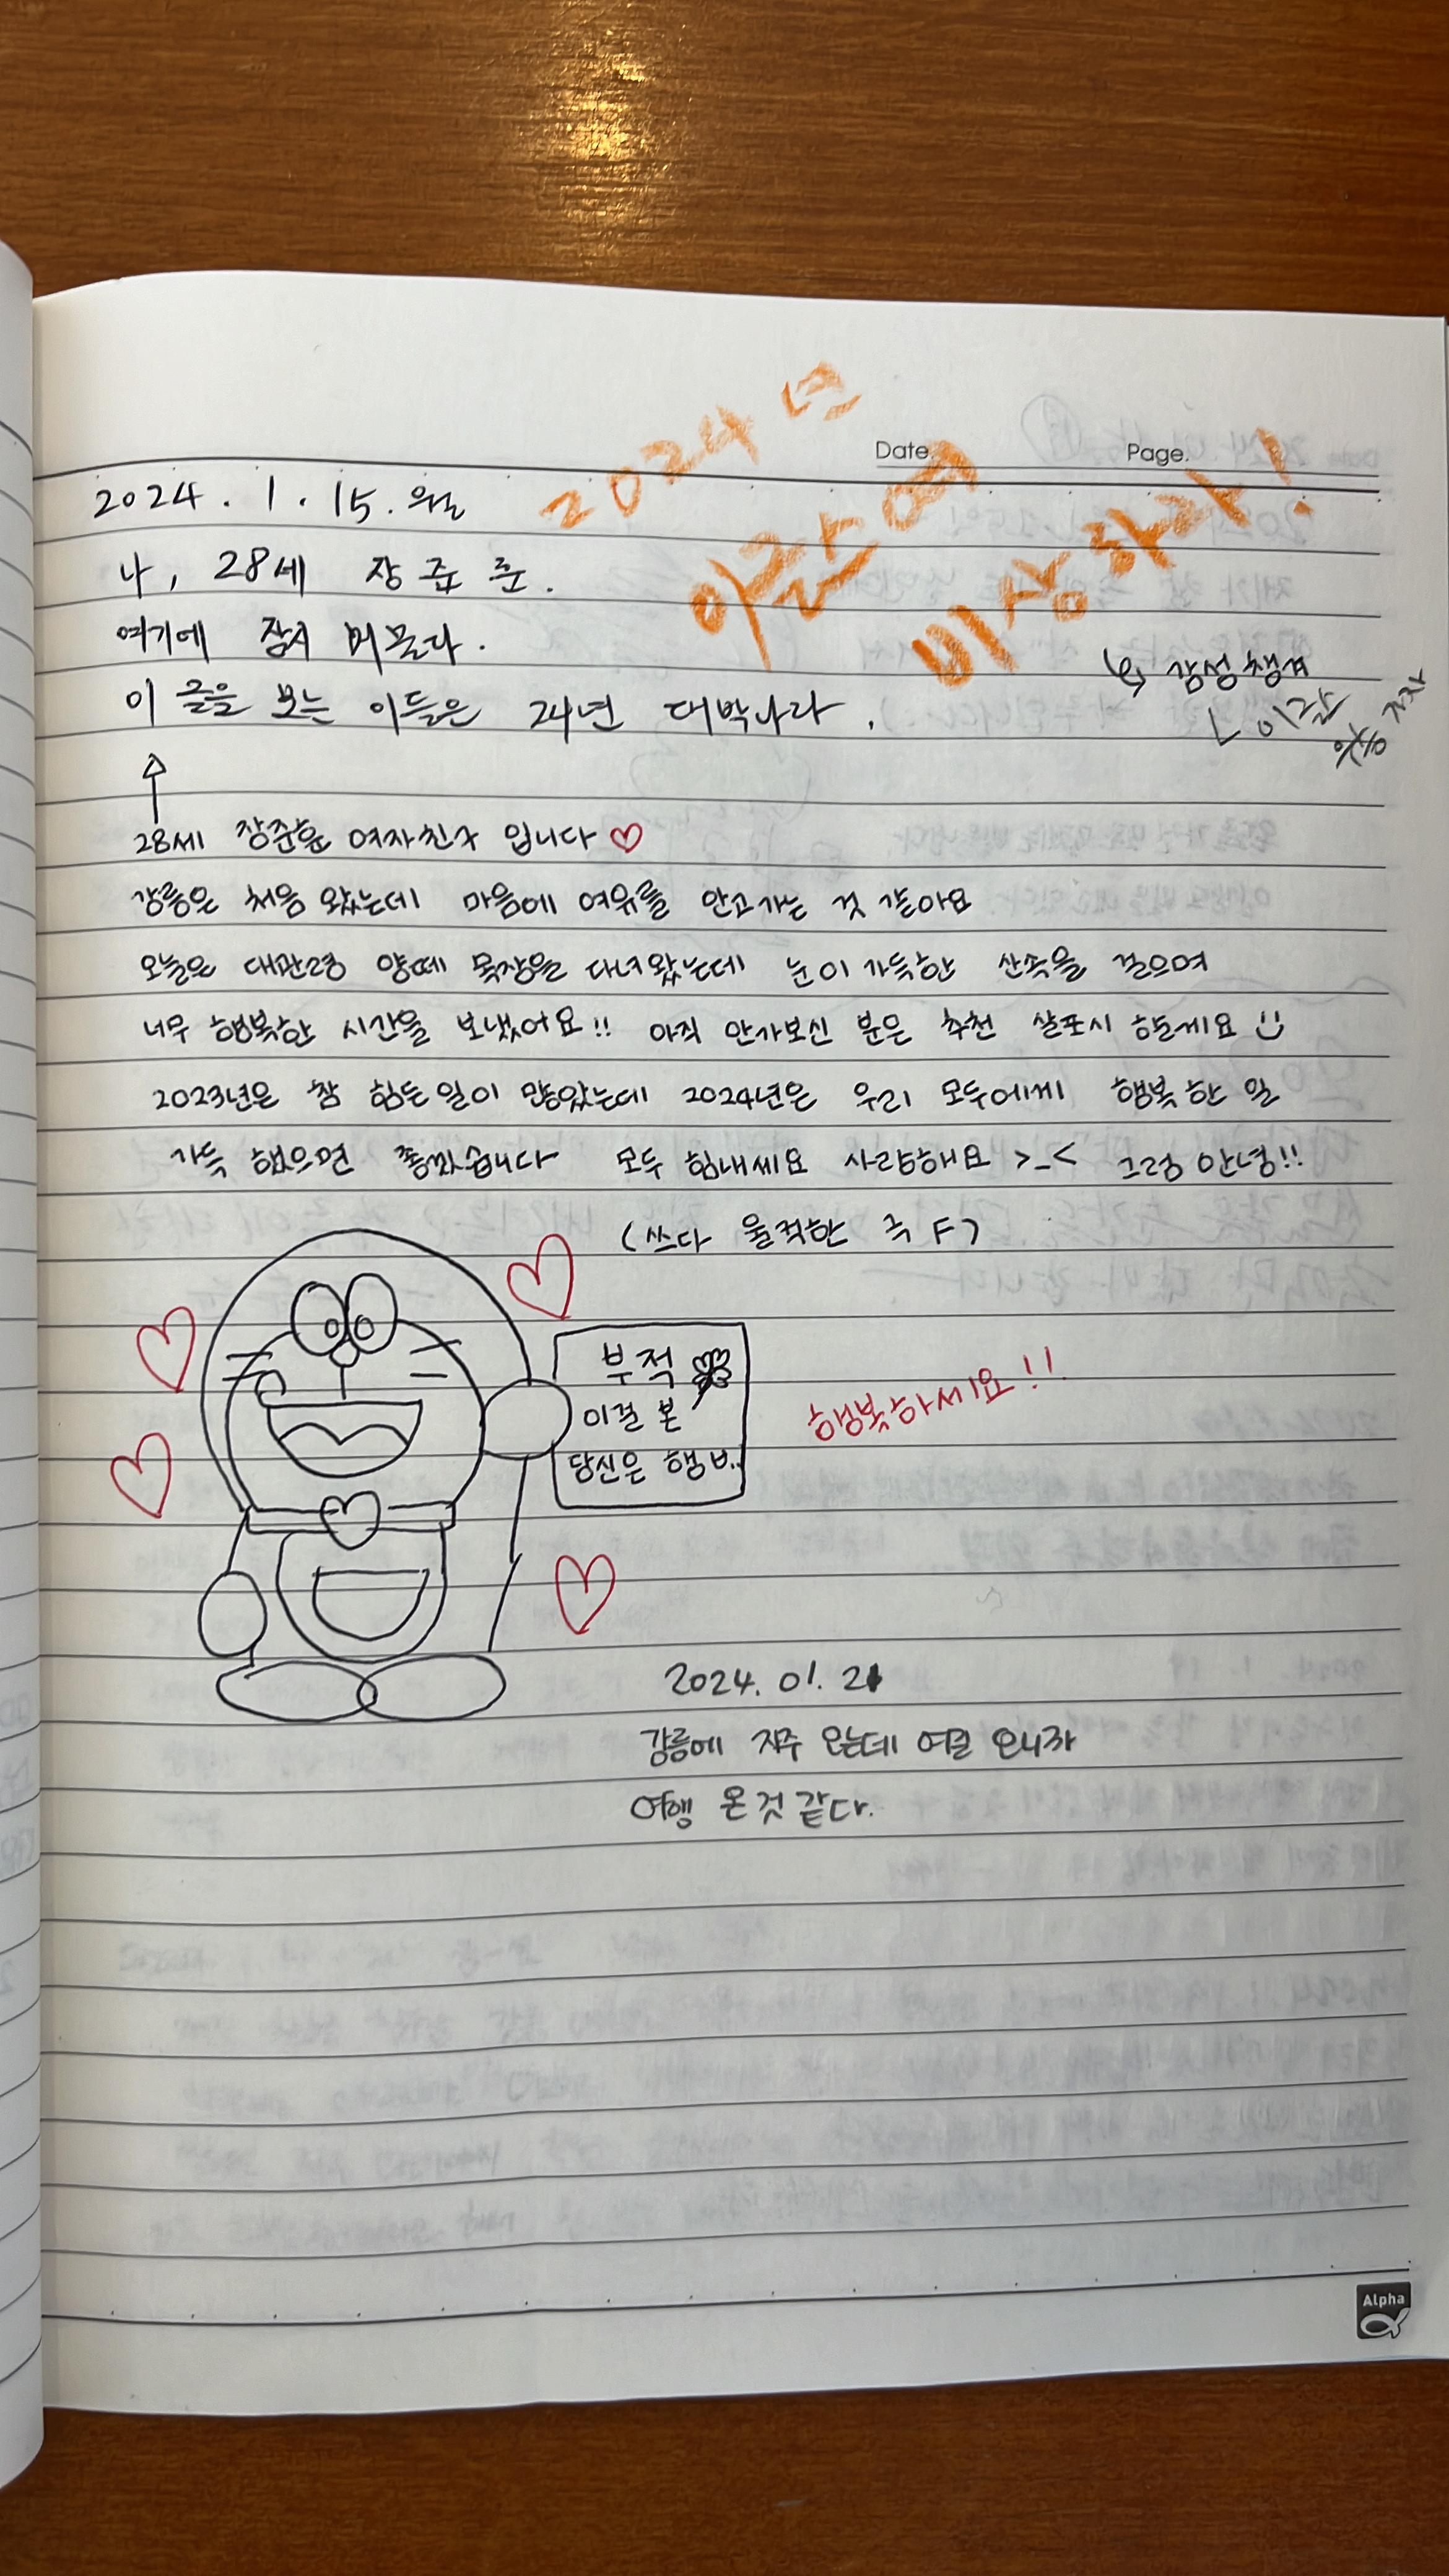 2024년
Date.
Page.
이륙하여
비상하자!
2024. 1. 15. 월
나, 28세 장준훈.
여기에 잠시 머문다.
이 글을 보는 이들은 24년 대박나라.
↳ 감성 챙겨
↑
28세 장준훈 여자친구 입니다 ♡
강릉은 처음 왔는데 마음에 여유를 안고가는 것 같아요
오늘은 대관령 양떼 목장을 다녀왔는데 눈이 가득한 산속을 걸으며
너무 행복한 시간을 보냈어요!! 아직 안가보신 분은 추천 살포시 할게요
2023년은 참 힘든 일이 많았는데 2024년은 우리 모두에게 행복한 일
가득 했으면 좋겠습니다 모두 힘내세요 사랑해요 >_< 그럼 안녕!!
(쓰다 울적한 극 F)
부적
이걸 본
당신은 행ㅂ..
행복하세요!!
2024. 01. 21
강릉에 자주 오는데 여길 오니까
여행 온 것 같다.
Alpha